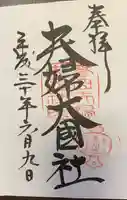 奉拝
夫婦大國社
平成三十年六月九日